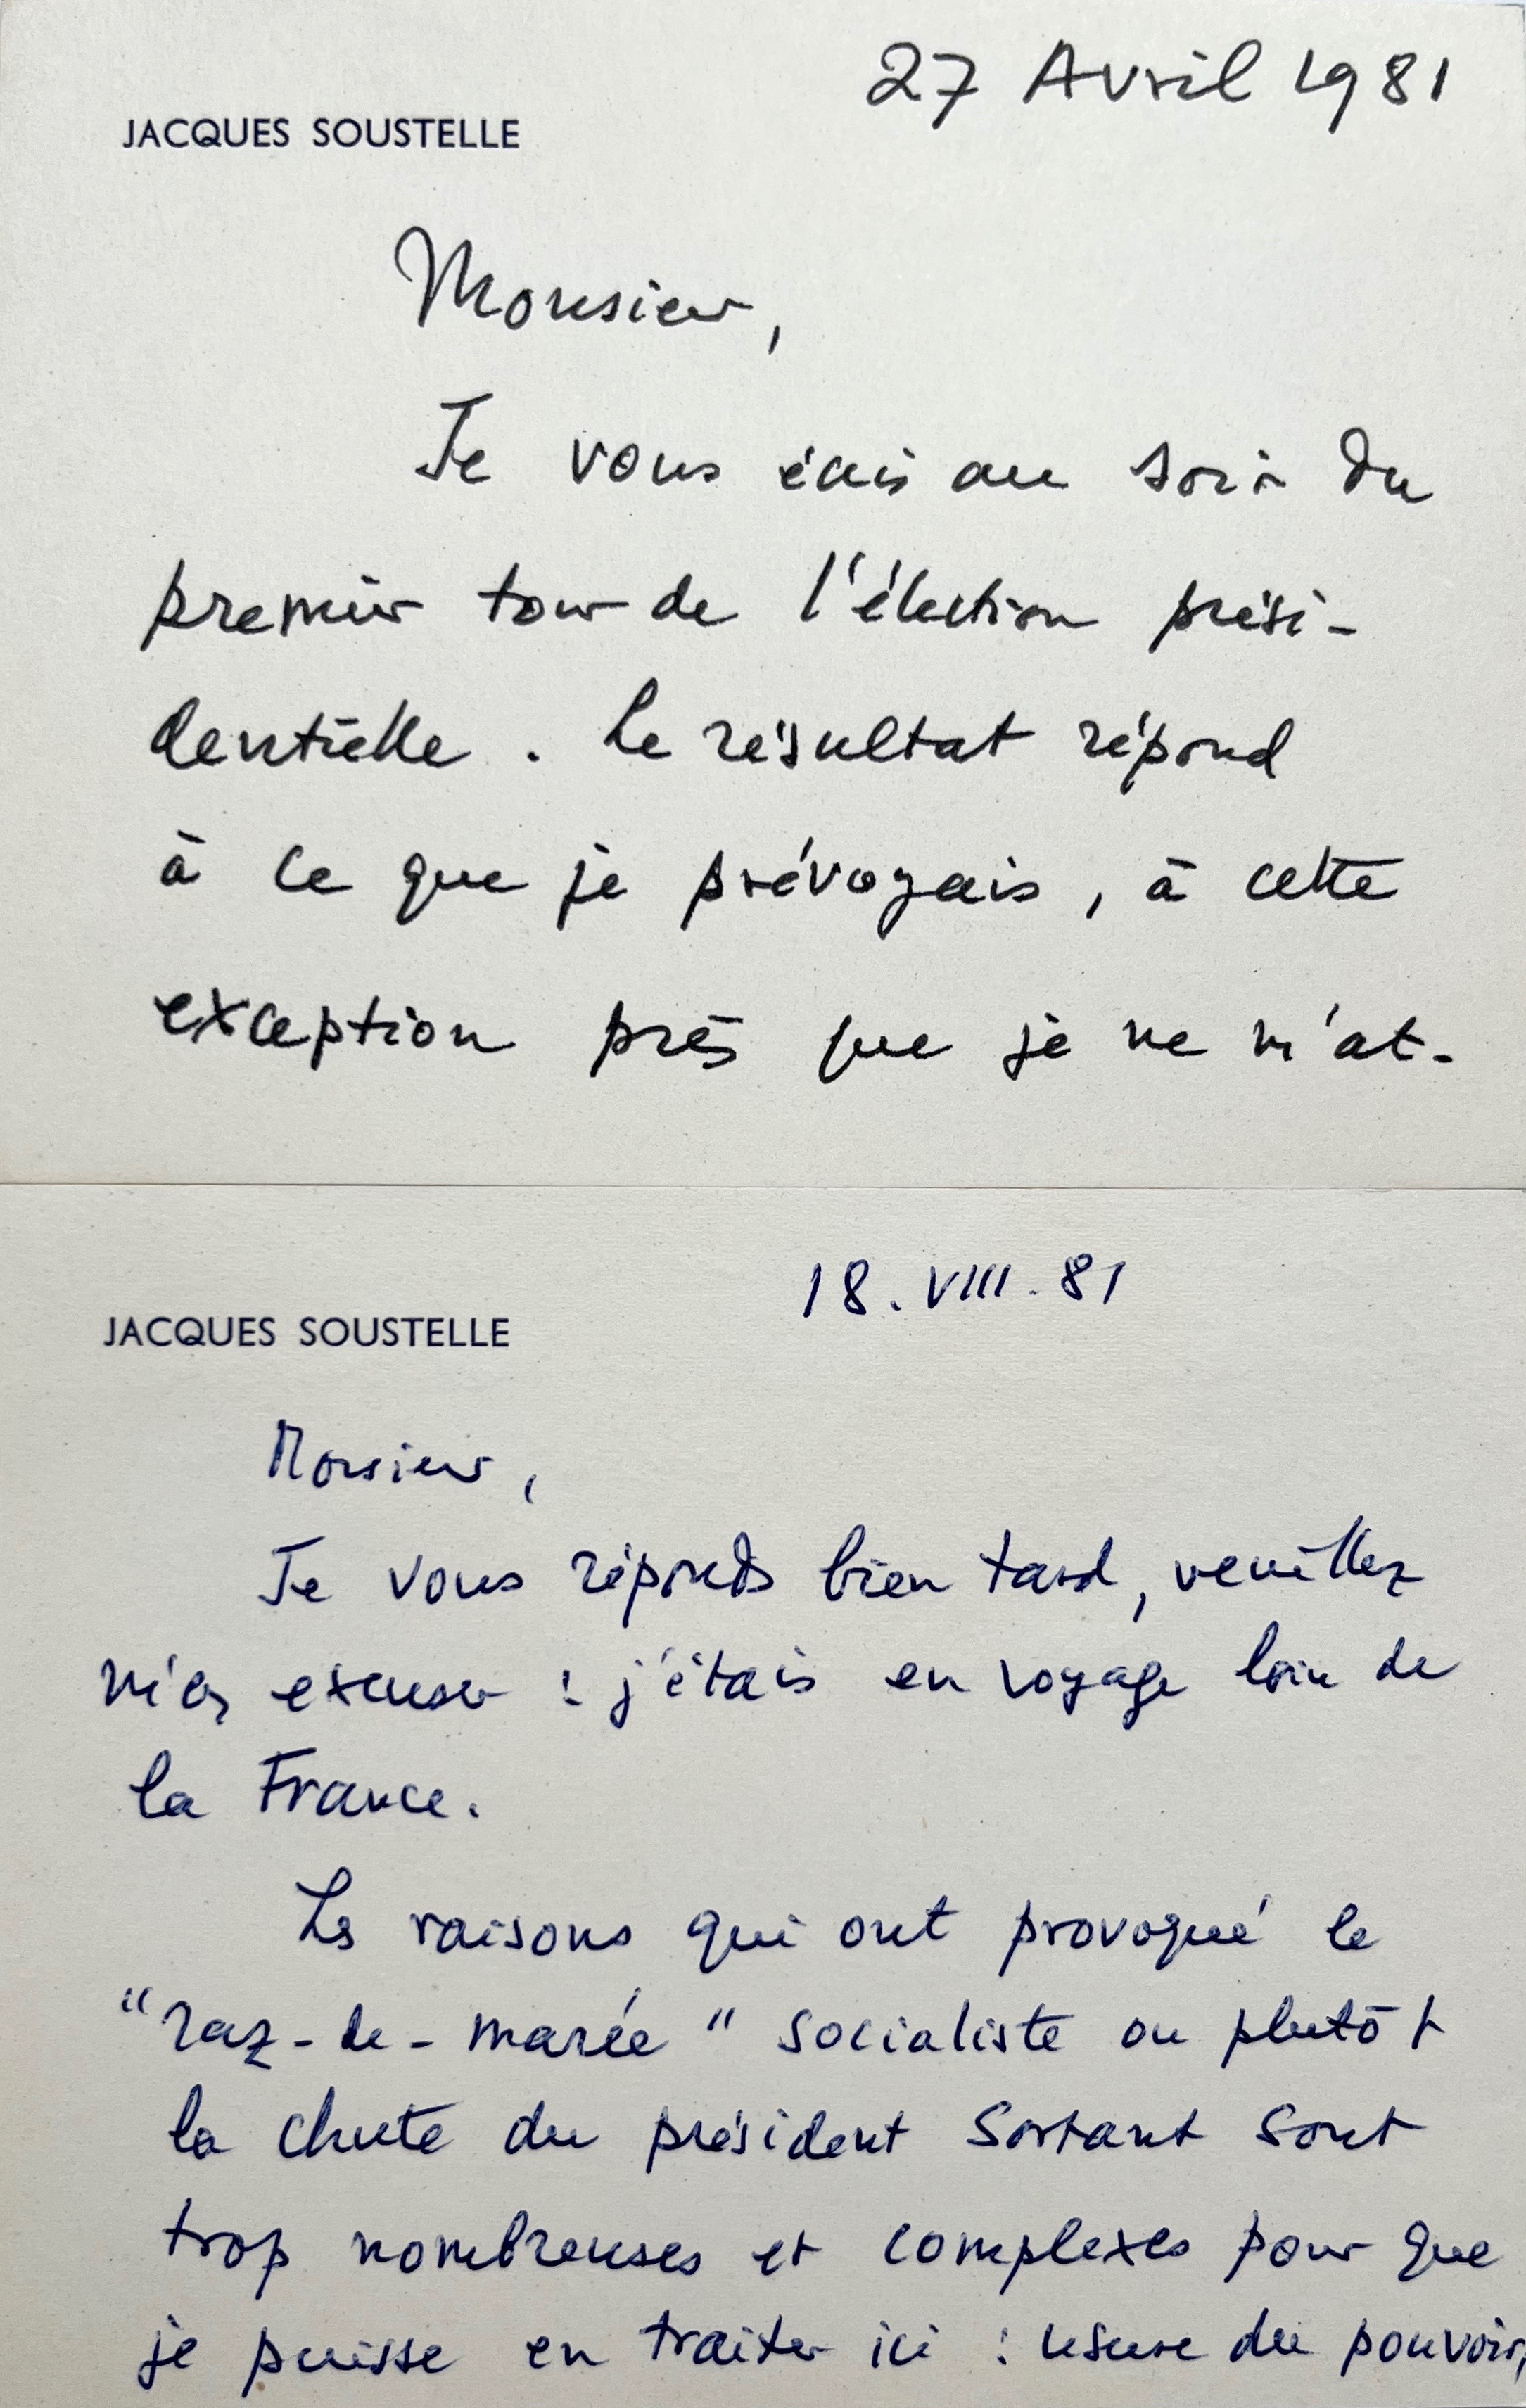 27 Avril 1981
JACQUES SOUSTELLE
Monsieur,
Je vous écris au soir du
premier tour de l'élection prési-
dentielle. Le résultat répond
à ce que je prévoyais, à cette
exception près que je ne m'at-
18.VIII.81
JACQUES SOUSTELLE
Monsieur,
Je vous réponds bien tard, veuillez
m'en excuser : j'étais en voyage loin de
la France.
Les raisons qui ont provoqué le
"raz-de-marée" socialiste ou plutôt
la chute du président sortant sont
trop nombreuses et complexes pour que
je puisse en traiter ici : usure du pouvoir,